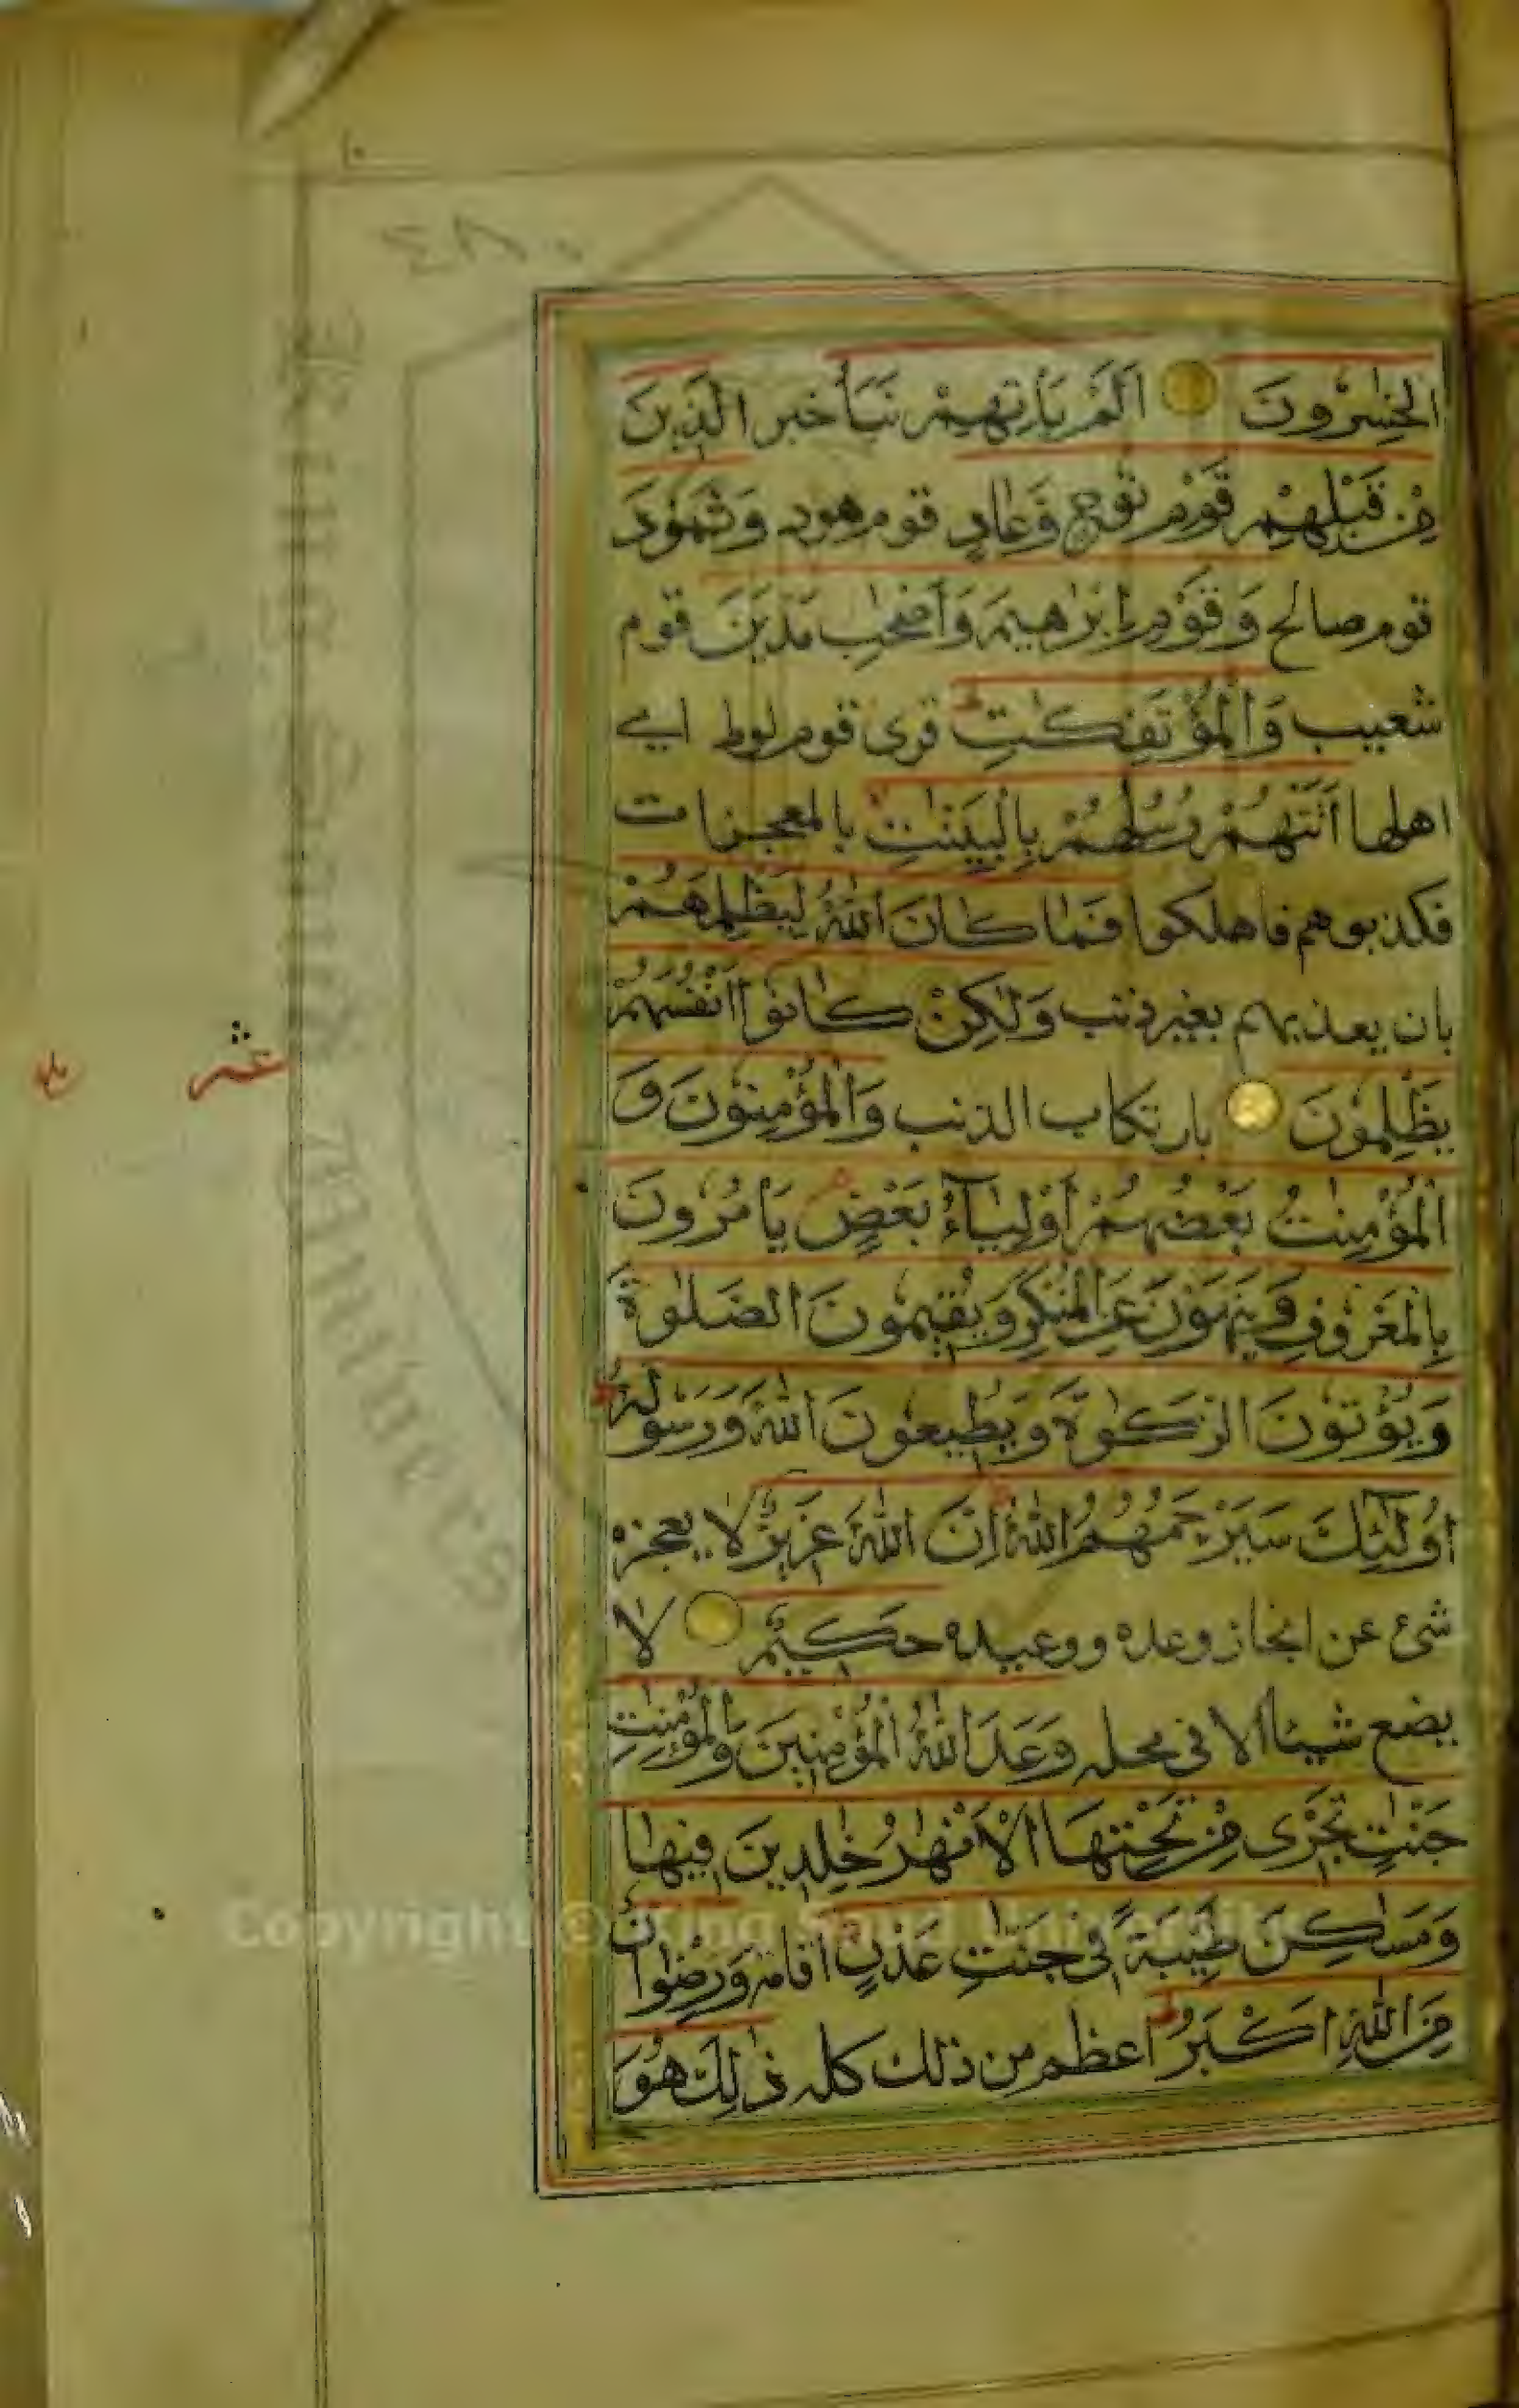 ٤٨٠
الْخٰسِرُونَ اَلَمْ يَاْتِهِمْ نَبَاُ خبر الَّذِينَ
مِنْ قَبْلِهِمْ قَوْمِ نُوحٍ وَعَادٍ قوم هود وَثَمُودَ
قوم صالح وَقَوْمِ اِبْرٰهِيمَ وَاَصْحٰبِ مَدْيَنَ قوم
شعيب وَالْمُؤْتَفِكٰتِ قرى قوم لوط اي
اهلها اَتَتْهُمْ رُسُلُهُمْ بِالْبَيِّنٰتِ بالمعجزات
فكذبوهم فاهلكوا فَمَا كَانَ اللّٰهُ لِيَظْلِمَهُمْ
بان يعذبهم بغير ذنب وَلٰكِنْ كَانُوا اَنْفُسَهُمْ
يَظْلِمُونَ بارتكاب الذنب وَالْمُؤْمِنُونَ وَ
الْمُؤْمِنٰتُ بَعْضُهُمْ اَوْلِيَآءُ بَعْضٍ يَاْمُرُونَ
بِالْمَعْرُوفِ وَيَنْهَوْنَ عَنِ الْمُنْكَرِ وَيُقِيمُونَ الصَّلٰوةَ
وَيُؤْتُونَ الزَّكٰوةَ وَيُطِيعُونَ اللّٰهَ وَرَسُولَهُ
اُولٰٓئِكَ سَيَرْحَمُهُمُ اللّٰهُ اِنَّ اللّٰهَ عَزِيزٌ لا يعجزه
شئ عن انجاز وعده ووعيده حَكِيمٌ لا
يضع شيئا الا في محله وَعَدَ اللّٰهُ الْمُؤْمِنِينَ وَالْمُؤْمِنٰتِ
جَنّٰتٍ تَجْرِى مِنْ تَحْتِهَا الْاَنْهٰرُ خٰلِدِينَ فِيهَا
وَمَسٰكِنَ طَيِّبَةً فِى جَنّٰتِ عَدْنٍ اقامة وَرِضْوَانٌ
مِنَ اللّٰهِ اَكْبَرُ اعظم من ذلك كله ذٰلِكَ هُوَ
عشر
Copyright © King Saud University